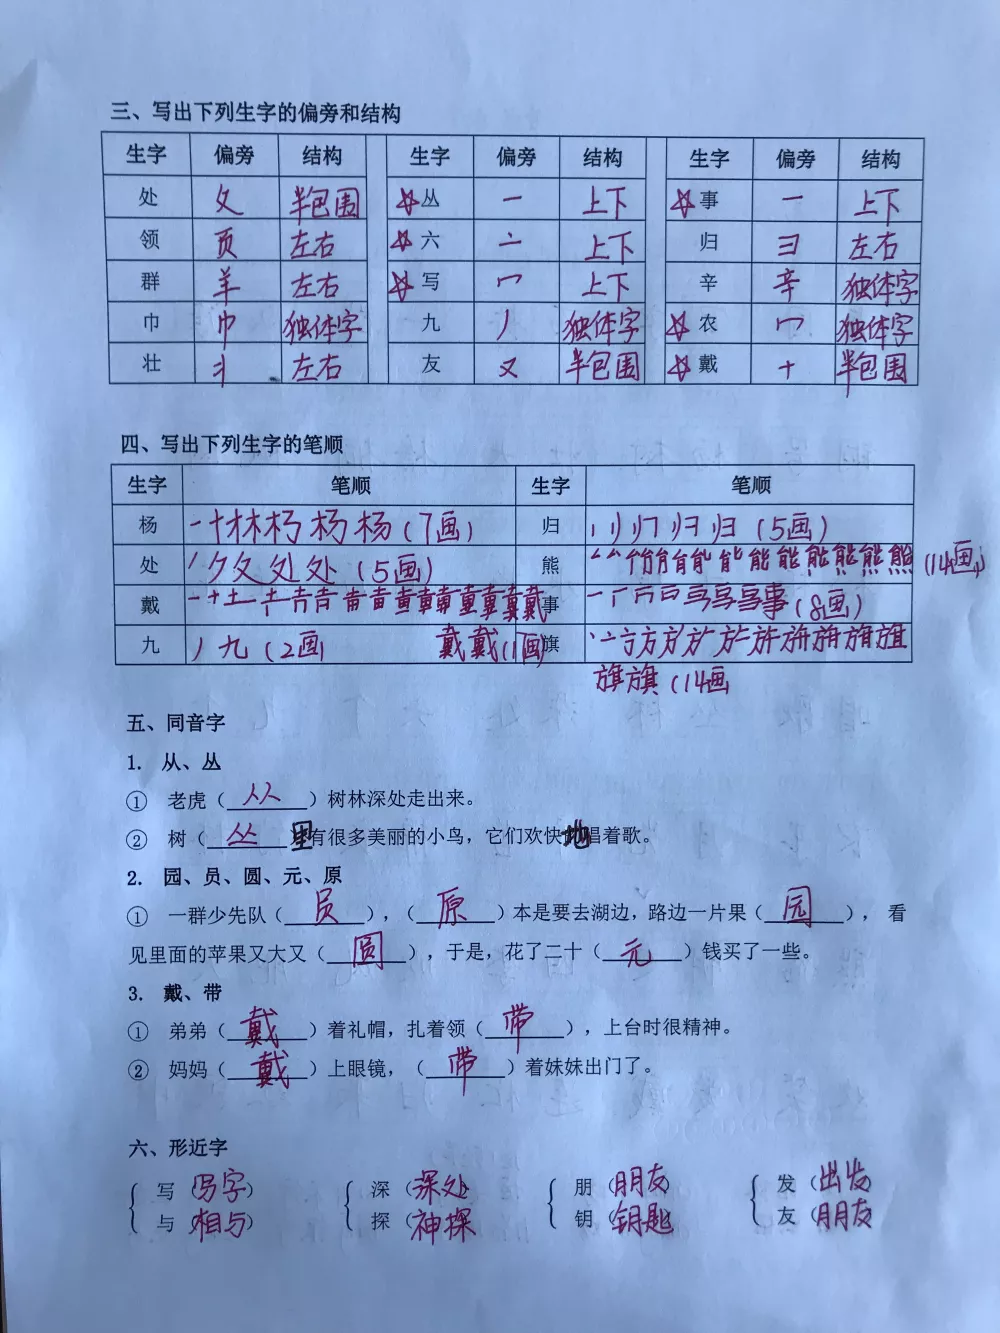 三、写出下列生字的偏旁和结构
生字 偏旁 结构 生字 偏旁 结构 生字 偏旁 结构
处 夂 半包围 ☆丛 一 上下 ☆事 一 上下
领 页 左右 ☆六 亠 上下 归 彐 左右
群 羊 左右 ☆写 冖 上下 辛 辛 独体字
巾 巾 独体字 九 丿 独体字 ☆农 冖 独体字
壮 丬 左右 友 又 半包围 ☆戴 十 半包围
四、写出下列生字的笔顺
生字 笔顺 生字 笔顺
杨 杨(7画) 归 归(5画)
处 处(5画) 熊 熊(14画)
戴 戴 事 事(8画)
九 丿九(2画 戴戴(1画) 旗
旗旗(14画
五、同音字
1. 从、丛
① 老虎(从)树林深处走出来。
② 树(丛)里有很多美丽的小鸟，它们欢快地唱着歌。
2. 园、员、圆、元、原
① 一群少先队(员)，(原)本是要去湖边，路边一片果(园)，看
见里面的苹果又大又(圆)，于是，花了二十(元)钱买了一些。
3. 戴、带
① 弟弟(戴)着礼帽，扎着领(带)，上台时很精神。
② 妈妈(戴)上眼镜，(带)着妹妹出门了。
六、形近字
写(写字) 深(深处) 朋(朋友) 发(出发)
与(相与) 探(神探) 钥(钥匙) 友(朋友)